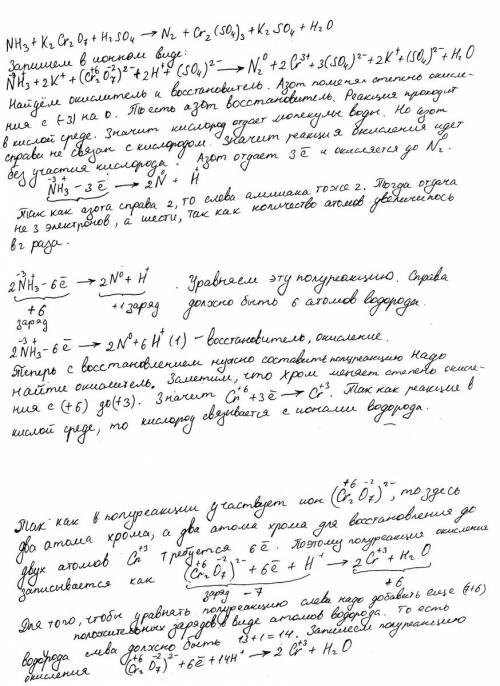 NH₃ + K₂Cr₂O₇ + H₂SO₄ → N₂ + Cr₂(SO₄)₃ + K₂SO₄ + H₂O
Запишем в ионном виде:
-3 + +6 -2
NH₃ + 2K⁺ + (Cr₂O₇)²⁻ + 2H⁺ + (SO₄)²⁻ → N₂⁰ + 2Cr³⁺ + 3(SO₄)²⁻ + 2K⁺ + (SO₄)²⁻ + H₂O
Найдём окислитель и восстановитель. Азот поменял степень окисле-
ния с (-3) на 0. То есть азот восстановитель. Реакция проходит
в кислой среде. Значит кислород отдает молекулы воды. Но азот
справа не связан с кислородом. Значит реакция окисления идет
без участия кислорода. Азот отдает 3ē и окисляется до N₂.
-3 +
NH₃ - 3ē → 2N⁰ + H⁺
Так как азота справа 2, то слева аммиака тоже 2. Тогда отдача
не 3 электронов, а шести, так как количество атомов увеличилось
в 2 раза.
-3 +
2NH₃ - 6ē → 2N⁰ + H⁺. Уравняем эту полуреакцию. Справа
+6 заряд +1 заряд должно быть 6 атомов водорода.
-3 +
2NH₃ - 6ē → 2N⁰ + 6H⁺ (1) - восстановитель, окисление.
Теперь с восстановлением нужно составить полуреакцию надо
найти окислитель. Заметим, что хром меняет степень окисле-
ния с (+6) до (+3). Значит Cr⁺⁶ + 3ē → Cr⁺³. Так как реакция в
кислой среде, то кислород связывается с ионами водорода.
+6 -2
Так как в полуреакции участвует ион (Cr₂O₇)²⁻, то здесь
два атома хрома, а два атома хрома для восстановления до
двух атомов Cr⁺³ требуется 6ē. Поэтому полуреакция окисление
+6 -2
записывается как (Cr₂O₇)²⁻ + 6ē + H⁺ → 2Cr⁺³ + H₂O
заряд -7 +6
Для того, чтобы уравнять полуреакцию слева надо добавить еще (7+6)
положительных зарядов в виде атомов водорода. То есть
водорода слева должно быть 13+1=14. Запишем полуреакцию
+6 -2
окисления (Cr₂O₇)²⁻ + 6ē + 14H⁺ → 2Cr⁺³ + H₂O